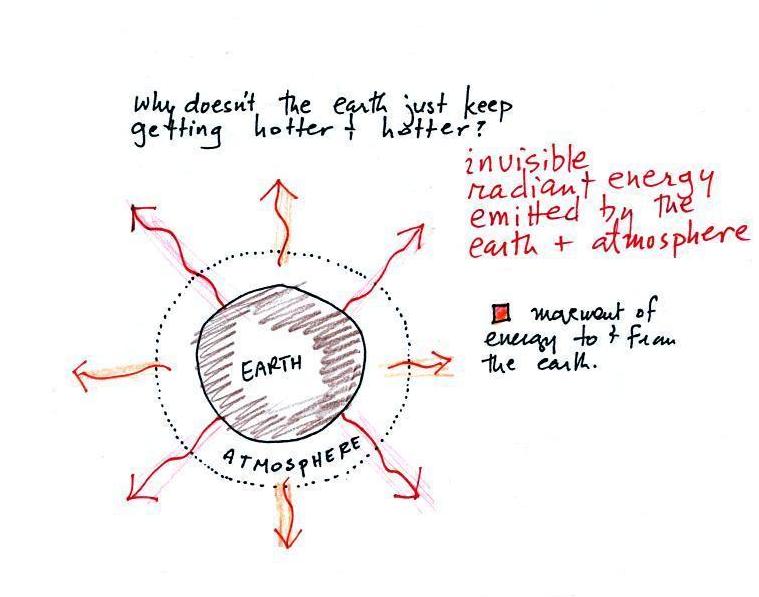 Why doesn't the earth just keep
getting hotter + hotter?
invisible
radiant energy
emitted by the
earth + atmosphere
movement of
energy to + from
the earth.
EARTH
ATMOSPHERE